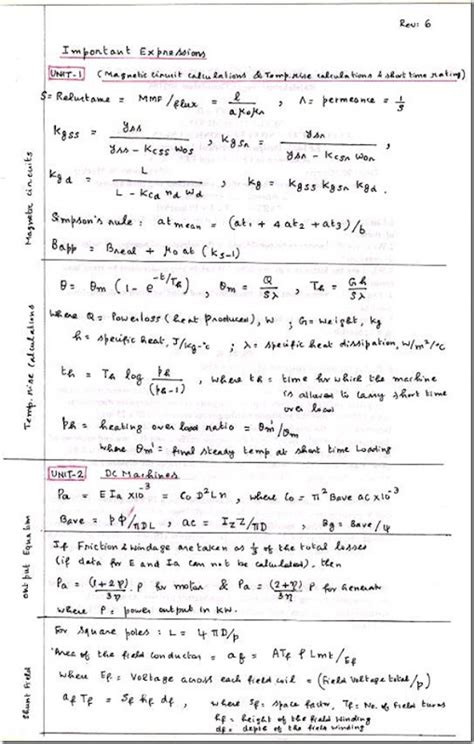 Rev: 6
Important Expressions
UNIT-1 (Magnetic circuit calculations & Temp.rise calculations & short time rating)
S = Reluctance = MMF/flux = l/(a μ0 μr) , Λ = permeance = 1/S
Kgss = yss/(yss - Kcss wos) , Kgsr = ysr/(ysr - Kcsr wor)
Kgd = L/(L - Kcd nd wd) , Kg = Kgss Kgsr Kgd .
Simpson's rule : at mean = (at1 + 4 at2 + at3)/6
Bapp = Breal + μ0 at (Ks-1)
Magnetic circuits
θ = θm (1 - e^(-t/Th)) , θm = Q/(Sλ) , Th = Gh/(Sλ)
Where Q = Powerloss (heat produced), W ; G = Weight, Kg
h = specific heat, J/Kg-°c ; λ = specific heat dissipation, W/m²/°c
th = Th log ph/(ph-1) , where th = time for which the machine
is allowed to carry short time
over load
ph = heating over load ratio = θm'/θm
Where θm' = final steady temp at short time loading
Temp.rise calculations
UNIT-2 DC Machines
Pa = E Ia x10^-3 = Co D²Ln , where Co = π² Bave ac x10^-3
Bave = pΦ/πDL , ac = Iz Z/πD , Bg = Bave/ψ
If Friction & windage are taken as 1/3 of the total losses
(if data for E and Ia can not be calculated). then
Pa = (1+2η)/3η . P for motor & Pa = (2+η)/3η P for Generator
where P = power output in KW.
Output Equation
For Square poles : L = ψ πD/p
Area of the field conductor = af = ATf ρ Lmt/Ef
where Ef = Voltage across each field coil = (Field Voltage total/p)
af Tf = Sf hf df , where Sf = space factor, Tf = No. of Field turns
hf = height of the field winding
df = depth of the field winding
Shunt Field